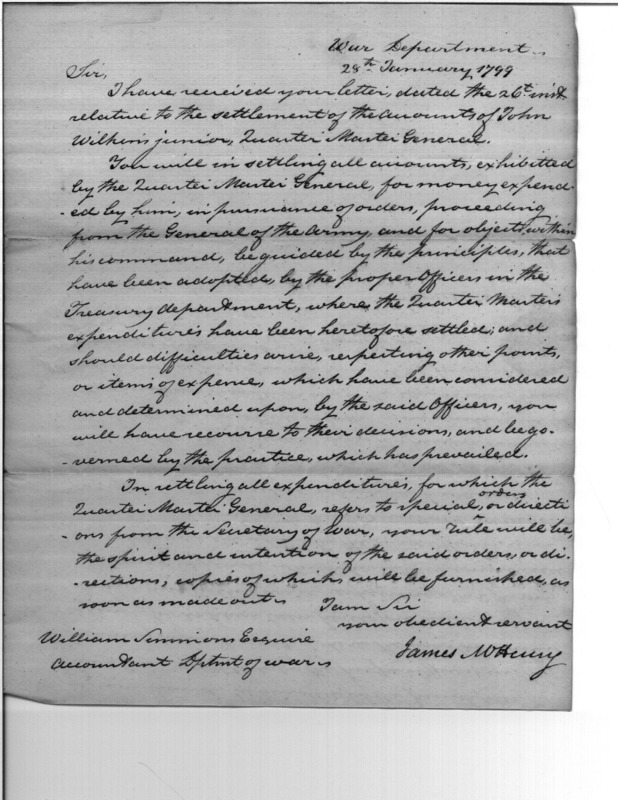 War Department
28th January 1799
Sir,
I have received your letter, dated the 26t. inst
relative to the settlement of the accounts of John
Wilkins junior, Quarter Master General.
You will in settling all accounts, exhibitted
by the Quarter Master General, for money expend-
-ed by him, in pursuance of orders, proceeding
from the General of the Army, and for objects, within
his command, be guided by the principles, that
have been adopted, by the proper Officers in the
Treasury department, where the Quarter Masters
expenditures have been heretofore settled; and
should difficulties arise, respecting other points,
or items of expence, which have been considered
and determined upon, by the said Officers, you
will have recourse to their decisions, and be go-
-verned by the practice, which has prevailed.
In settling all expenditures, for which the
Quarter Master General, refers to special orders, or directi-
ons from the Secretary of War, your rule will be,
the spirit and intention of the said orders, or di-
-rections, copies of which, will be furnished, as
soon as made out.
I am Sir
your obedient servant
James McHenry
William Simmons Esquire
accountant Dptmt of war